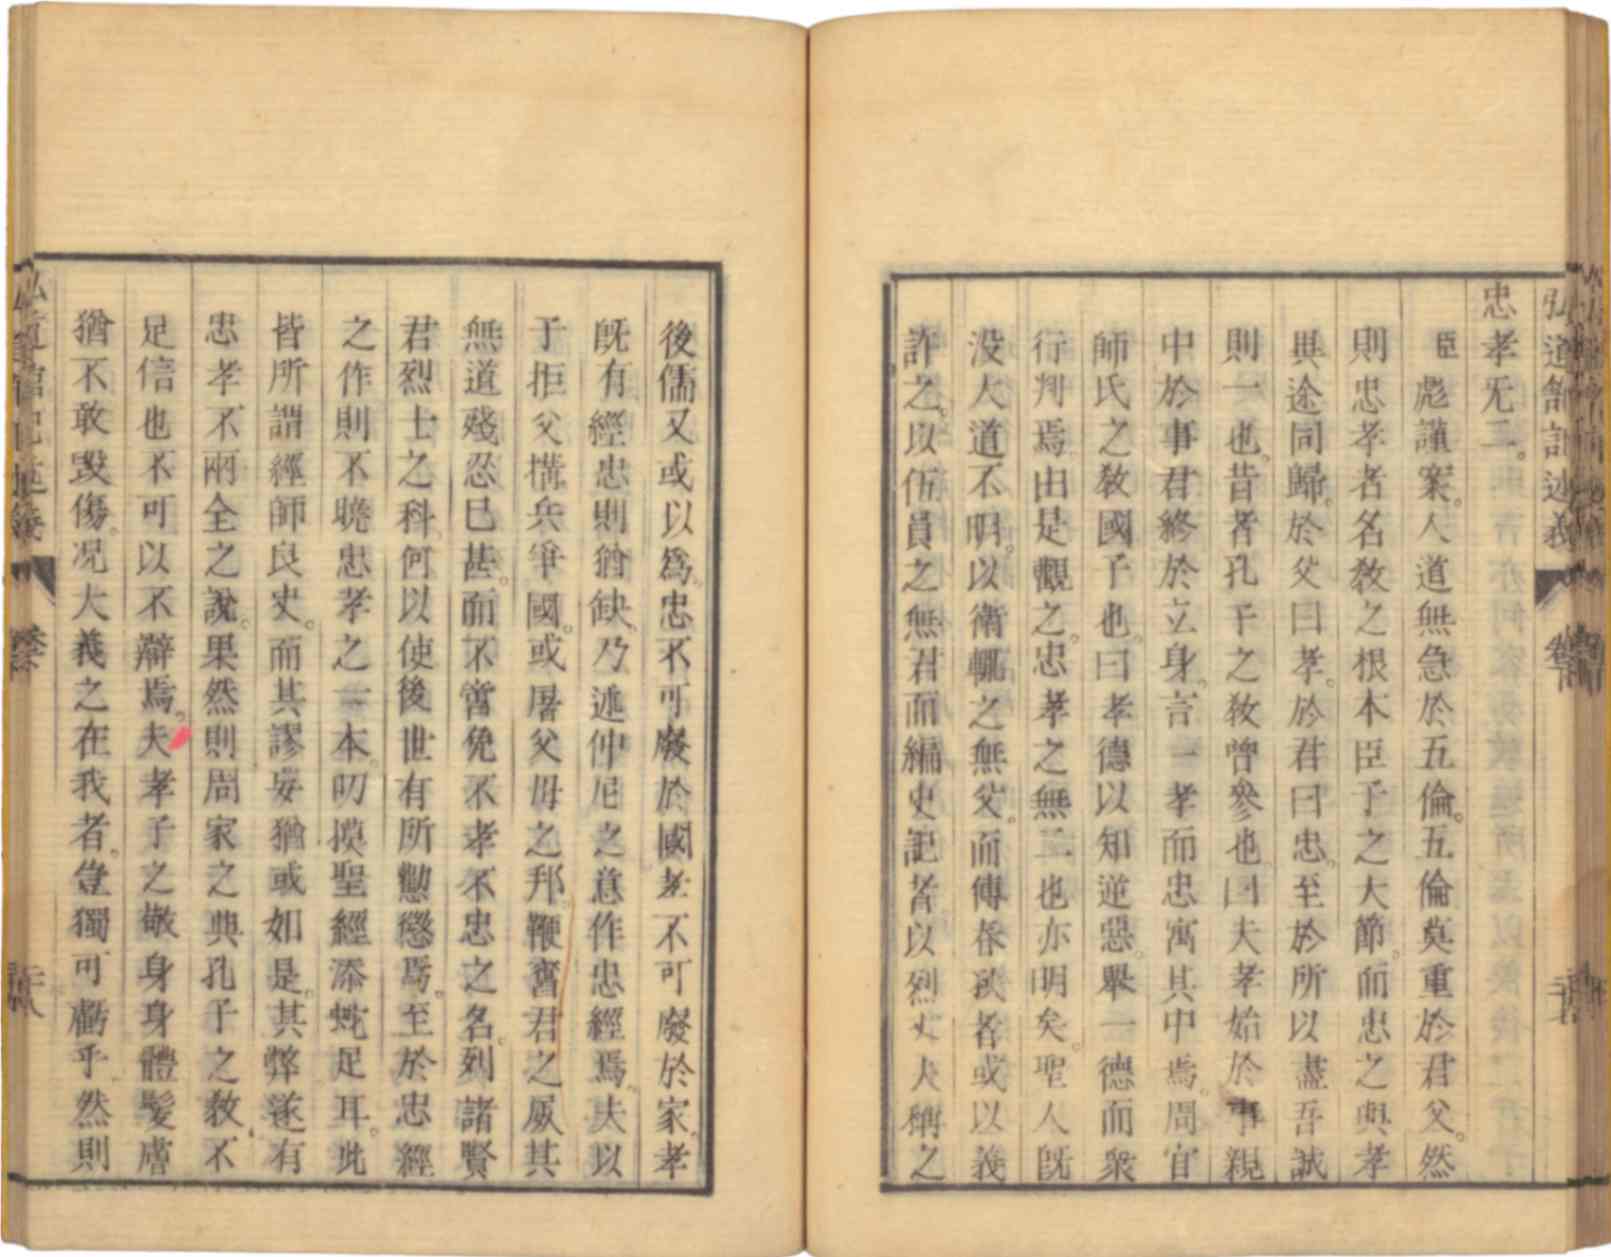 弘道館記述義
忠孝无二。
臣彪謹案。人道無急於五倫。五倫莫重於君父。然
則忠孝者名教之根本臣子之大節。而忠之與孝
異途同歸。於父曰孝。於君曰忠。至於所以盡吾誠
則一也。昔者孔子之教曾參也。曰夫孝始於事親
中於事君終於立身。言一孝而忠寓其中焉。周官
師氏之教國子也。曰孝德以知逆惡。擧一德而衆
行判焉由是觀之。忠孝之無二也亦明矣。聖人既
没大道不明。以衛輒之無父。而傳春秋者或以義
許之。以伍員之無君而編史記者以烈丈夫稱之
後儒又或以爲。忠不可廢於國孝不可廢於家。孝
既有經忠則猶缺。乃述仲尼之意作忠經焉。夫以
子拒父搆兵爭國。或屠父母之邦。鞭舊君之屍其
無道殘忍已甚。而不啻免不孝不忠之名。列諸賢
君烈士之科。何以使後世有所懲懲焉。至於忠經
之作則不曉忠孝之一本。叨摸聖經添蛇足耳。此
皆所謂經師良史。而其謬妄猶或如是。其弊遂有
忠孝不兩全之說。果然則周家之典孔子之教不
足信也不可以不辯焉。夫孝子之敬身身體髮膚
猶不敢毀傷。况大義之在我者。豈獨可虧乎。然則
弘道館記述義